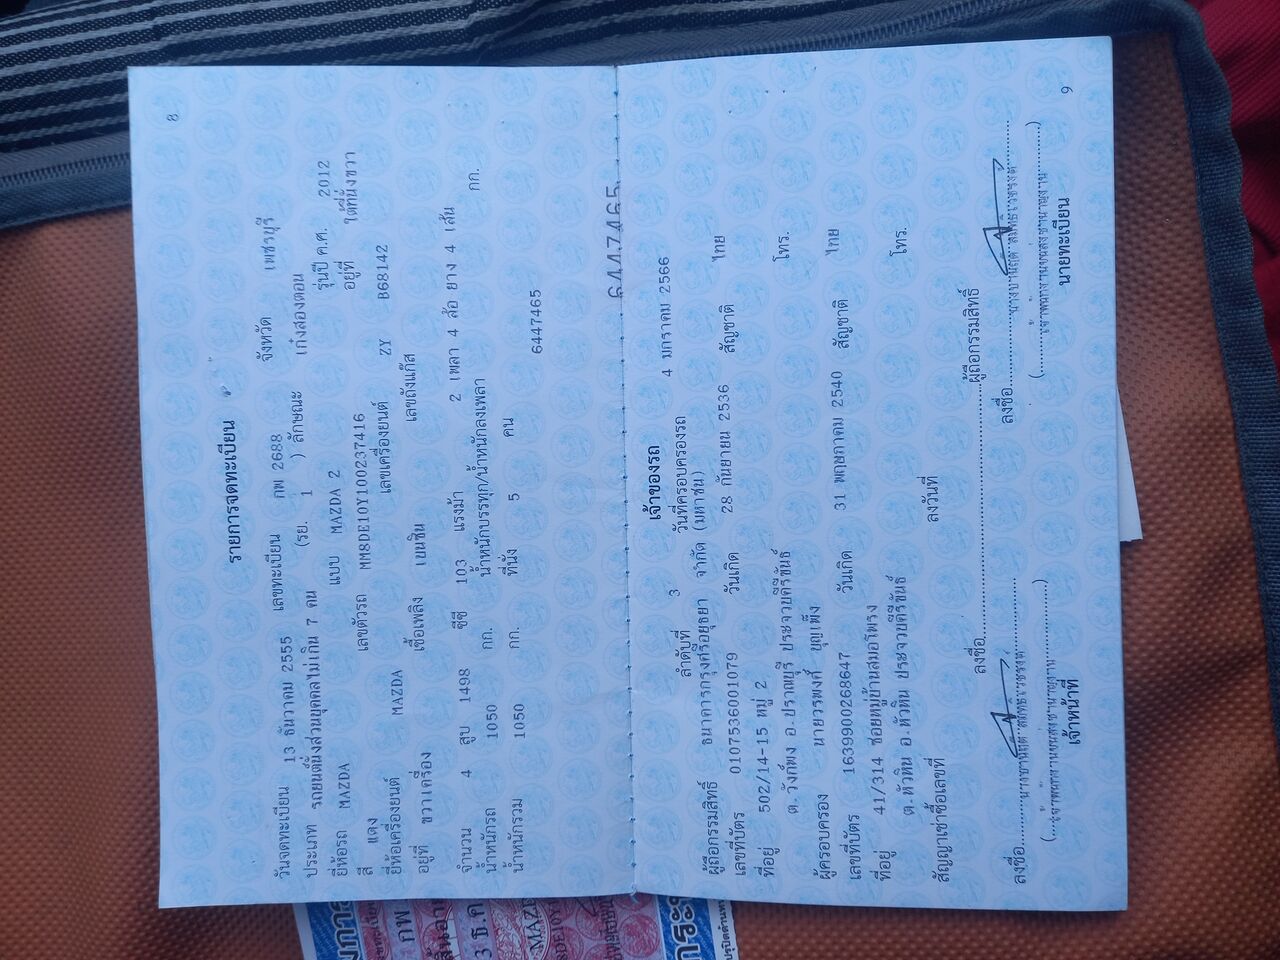 8
รายการจดทะเบียน
วันจดทะเบียน 13 ธันวาคม 2555 เลขทะเบียน กพ 2688 จังหวัด เพชรบุรี
ประเภท รถยนต์นั่งส่วนบุคคลไม่เกิน 7 คน (รย. 1 ) ลักษณะ เก๋งสองตอน
ยี่ห้อรถ MAZDA แบบ MAZDA 2 รุ่นปี ค.ศ. 2012
สี แดง เลขตัวรถ MM8DE10Y100237416 อยู่ที่ ใต้ที่นั่งขวา
ยี่ห้อเครื่องยนต์ MAZDA เลขเครื่องยนต์ ZY B68142
อยู่ที่ ขวาเครื่อง เชื้อเพลิง เบนซิน เลขถังแก๊ส
จำนวน 4 สูบ 1498 ซีซี 103 แรงม้า 2 เพลา 4 ล้อ ยาง 4 เส้น
น้ำหนักรถ 1050 กก. น้ำหนักบรรทุก/น้ำหนักลงเพลา กก.
น้ำหนักรวม 1050 กก. ที่นั่ง 5 คน
6447465
6447465
เจ้าของรถ
ลำดับที่ 3 วันที่ครอบครองรถ 4 มกราคม 2566
ผู้ถือกรรมสิทธิ์ ธนาคารกรุงศรีอยุธยา จำกัด (มหาชน)
เลขที่บัตร 0107536001079 วันเกิด 28 กันยายน 2536 สัญชาติ ไทย
ที่อยู่ 502/14-15 หมู่ 2
ต.วังก์พง อ.ปราณบุรี ประจวบคีรีขันธ์ โทร.
ผู้ครอบครอง นายวรพงศ์ บุญเพ็ง
เลขที่บัตร 1639900268647 วันเกิด 31 พฤษภาคม 2540 สัญชาติ ไทย
ที่อยู่ 41/314 ซอยหมู่บ้านสมอโพรง
ต.หัวหิน อ.หัวหิน ประจวบคีรีขันธ์ โทร.
สัญญาเช่าซื้อเลขที่ ลงวันที่
ลงชื่อ ผู้ถือกรรมสิทธิ์
ลงชื่อ ลงชื่อ
(เจ้าพนักงานขนส่งชำนาญงาน) (เจ้าพนักงานขนส่งชำนาญงาน)
เจ้าหน้าที่ นายทะเบียน
9
กพ
MAZDA